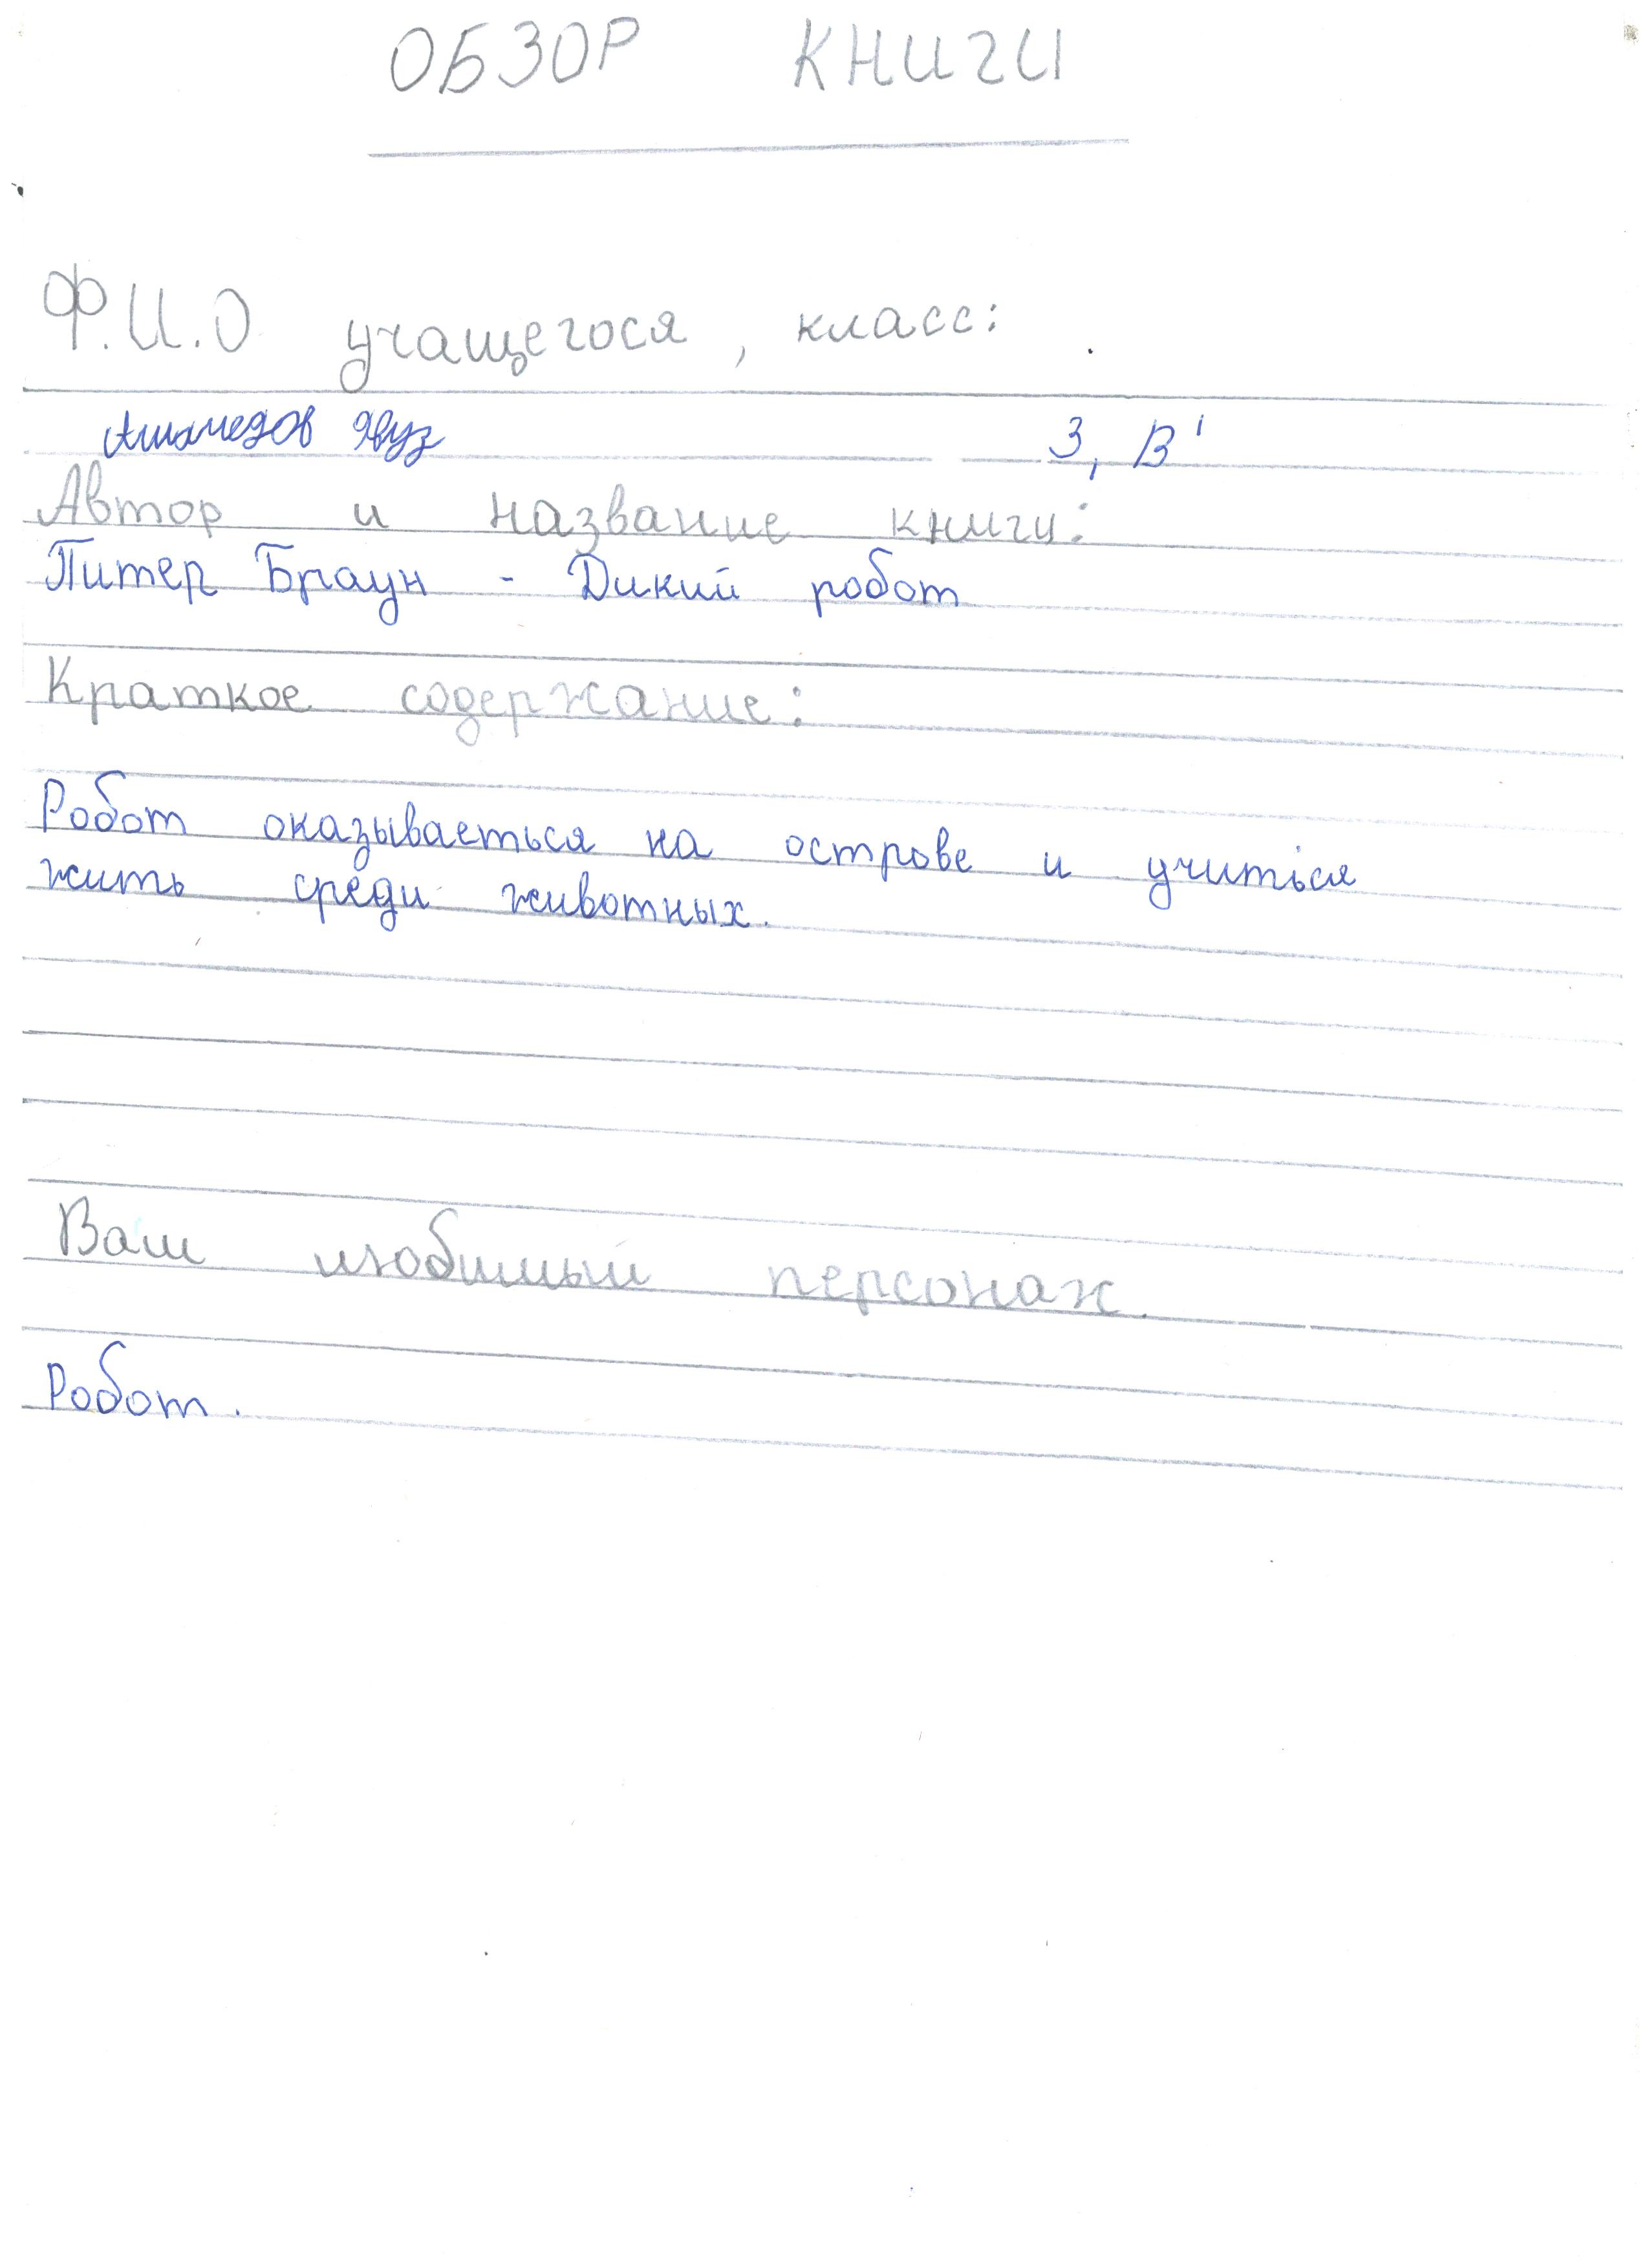 ОБЗОР КНИГИ
Ф.И.О учащегося, класс:
Ашмедов Явуз 3, В'
Автор и название книги:
Питер Браун - Дикий робот
Краткое содержание:
Робот оказываеться на острове и учиться
жить среди животных.
Ваш любимый персонаж.
Робот.